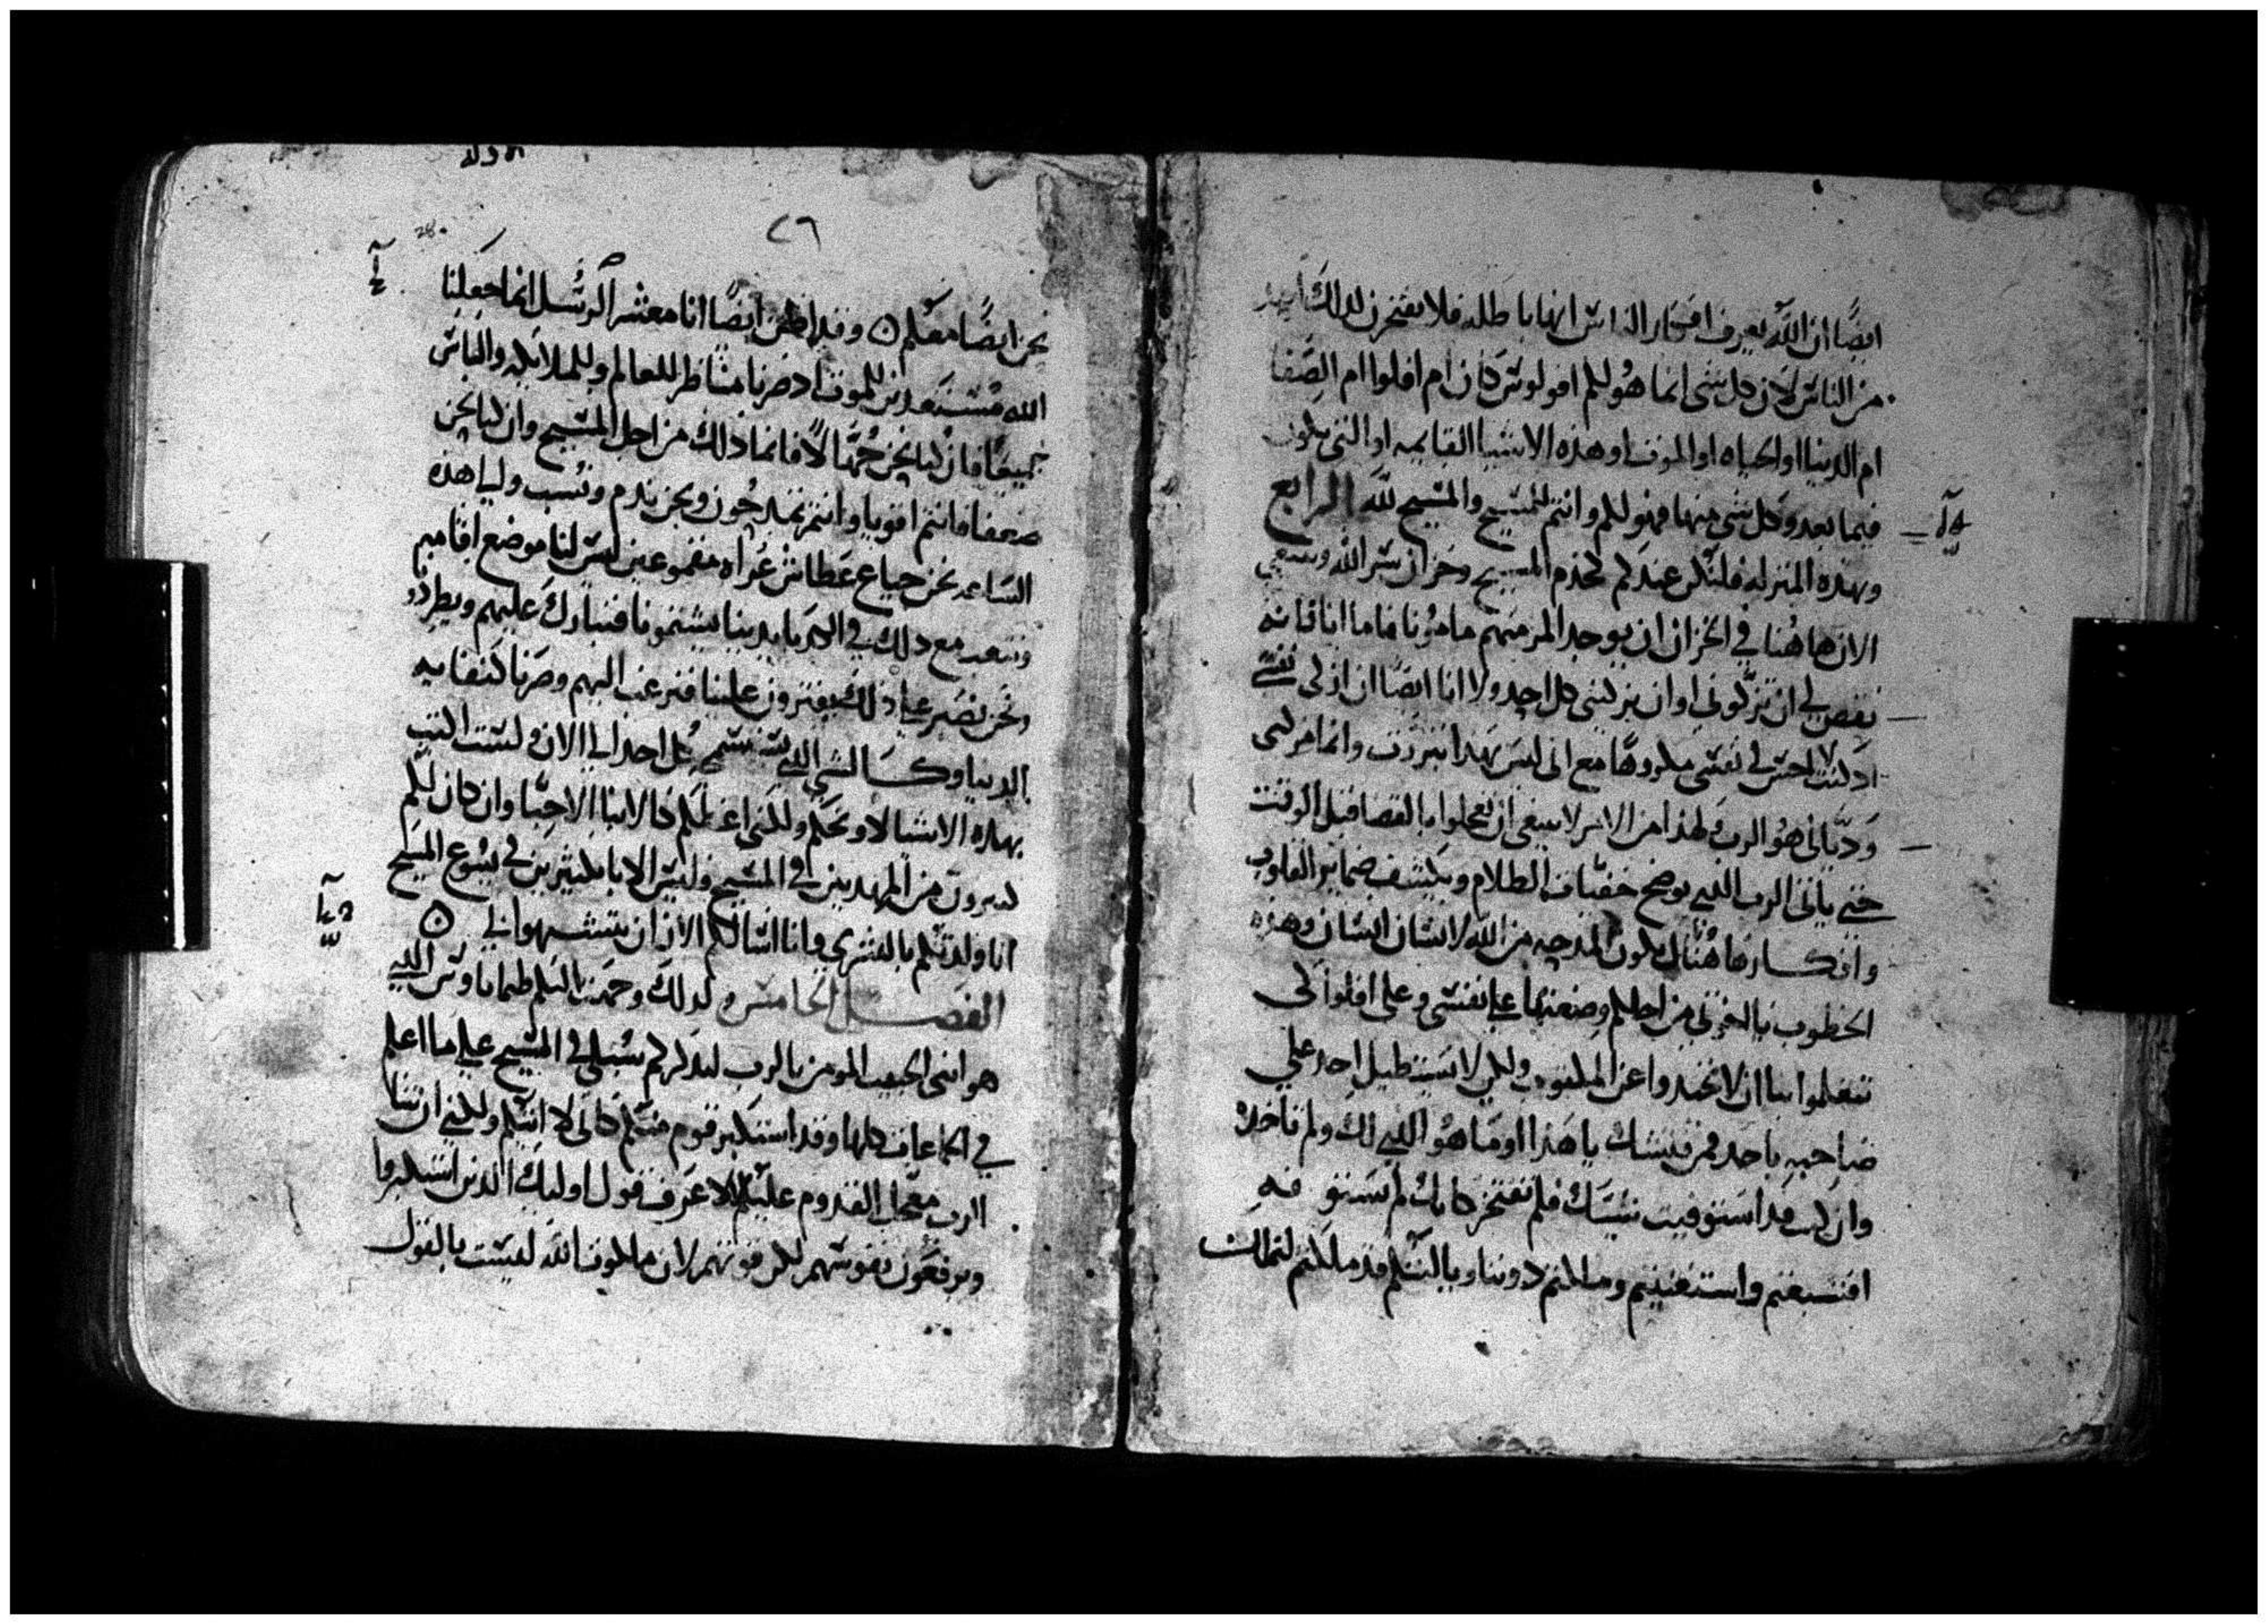 ايضًا ان الله يعرف افكار الناس انها باطله فلا يفتخرن لذلك احد
من الناس لان كل شى انما هو لكم افولوس كان ام افلوا ام الصفا
ام الدنيا او الحياه او الموت او هذه الاشيا القايمه او التى تكون
فيما بعد وكل شى منها فهو لكم وانتم للمسيح والمسيح لله الرابع
وبهذه المنزله فلنكن عندكم كخدم المسيح وخزان سر الله وينبغي
الان هاهنا في الخزان ان يوجد المر منهم مامونا فاما انا فانه
نقص لي ان تزكوني او ان يزكيني كل احد ولا انا ايضًا ان ازكى نفسي
اذ لست احس في نفسي مكروهًا مع اني ليس بهذا تبررت وانما مزكى
وديانى هو الرب لهذا من الامر لا ينبغي ان تعجلوا بالقضا قبل الوقت
حتى ياتى الرب الذي يوضح خفيات الظلام ويكشف ضماير القلوب
وافكارها هنالك تكون المدحه من الله لانسان انسان وهذه
الخطوب يا اخوتي من اجلكم وضعتها على نفسي وعلى افلوا لكى
تتعلموا بنا ان لا تخيدوا عن المكتوب ولكى لا يستطيل احد على
صاحبه باحد فمن فتشك يا هذا او ما هو الذي لك ولم تاخذه
وان كنت قد استوفيت فلم تفتخر كانك لم تستوفه
افتشبعتم واستغنيتم وملكتم دوننا ويا ليتكم قد ملكتم لنملك
٢٦
28.
نحن ايضًا معكم ۞ وقد اظن ايضًا انا معشر الرسل انما جعلنا
الله مستعدين للموت اذ صرنا مناظر للعالم وللملايكه والناس
جميعًا فان كنا نحن جهالا فانما ذلك من اجل المسيح وان كنا نحن
ضعفا فانتم اقويا وانتم تمدحون ونحن نذم ونسب والى هذه
الساعه نحن جياع عطاش عراه مقموعين ليس لنا موضع اقامه
ونتعب مع ذلك في الكد بايدينا يشتمونا فنبارك عليهم ويطردو
ونحن نصبر على ذلك يفترون علينا فنرغب اليهم وصرنا كنفايه
الدنيا وكالشي الذي يستسمجه كل احد الى الان ولست ابكتب
بهذه الاشيا لاوبخكم ولكنى اعظكم كالابنا الاحبا وان كان لكم
كبيرون من المهديين في المسيح فليس الابا بكثيرين في يسوع المسيح
انا ولدتكم بالبشرى وانا اسالكم الان ان تتشبهوا بي ۞
الفصل الخامس ولذلك وجهت اليكم طيماثاوس الذي
هو ابنى الحبيب المومن بالرب ليذكركم سبلى في المسيح على ما اعلم
في الجماعات كلها وقد استكبر قوم منكم كانى لا اتيكم ولكني ان شا
الرب معجل القدوم عليكم لاعرف قول اوليك الذين استكبروا
ويرفعون نفوسهم لكن قوتهم لان ملكوت الله ليست بالقول